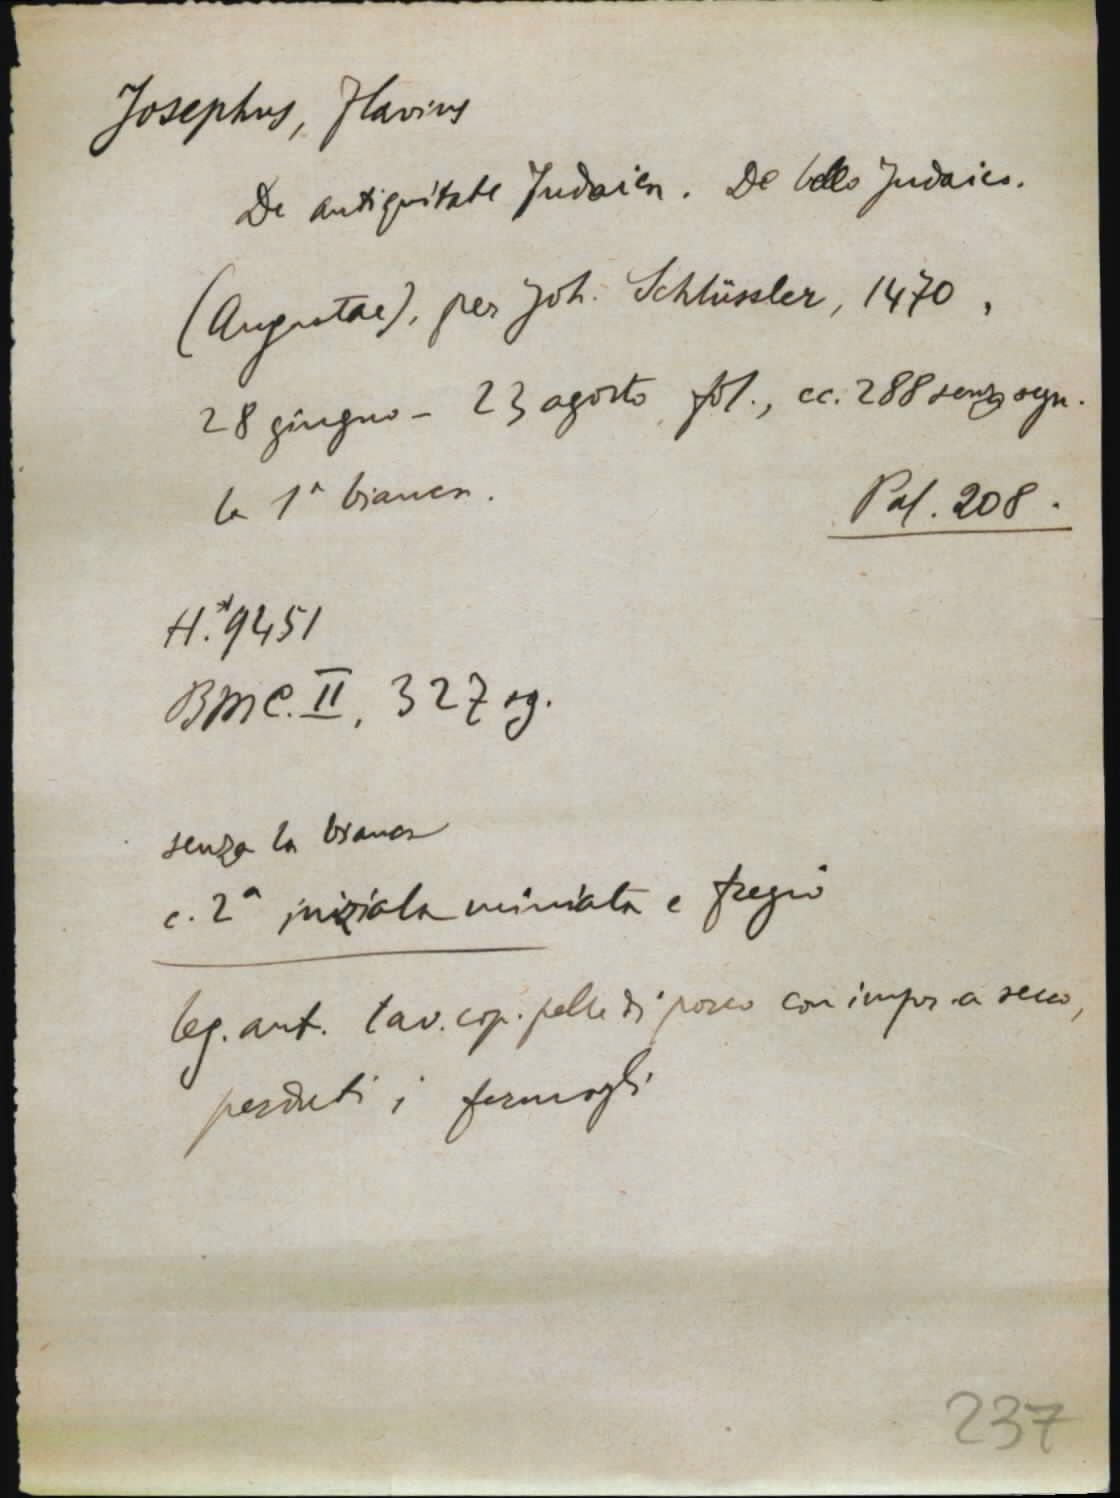 Josephus, Flavius
De antiquitate Judaica. De bello Judaico.
(Augustae), per Joh. Schlüssler, 1470,
28 giugno - 23 agosto fol., cc. 288 senza segn.
la 1ª bianca.
Pal. 208.
H.*9451
BMC. II, 327 sg.
senza la bianca
c. 2ª iniziala miniata e fregio
leg. ant. tav. cop. pelle di porco con impr. a secco,
perduti i fermagli
237